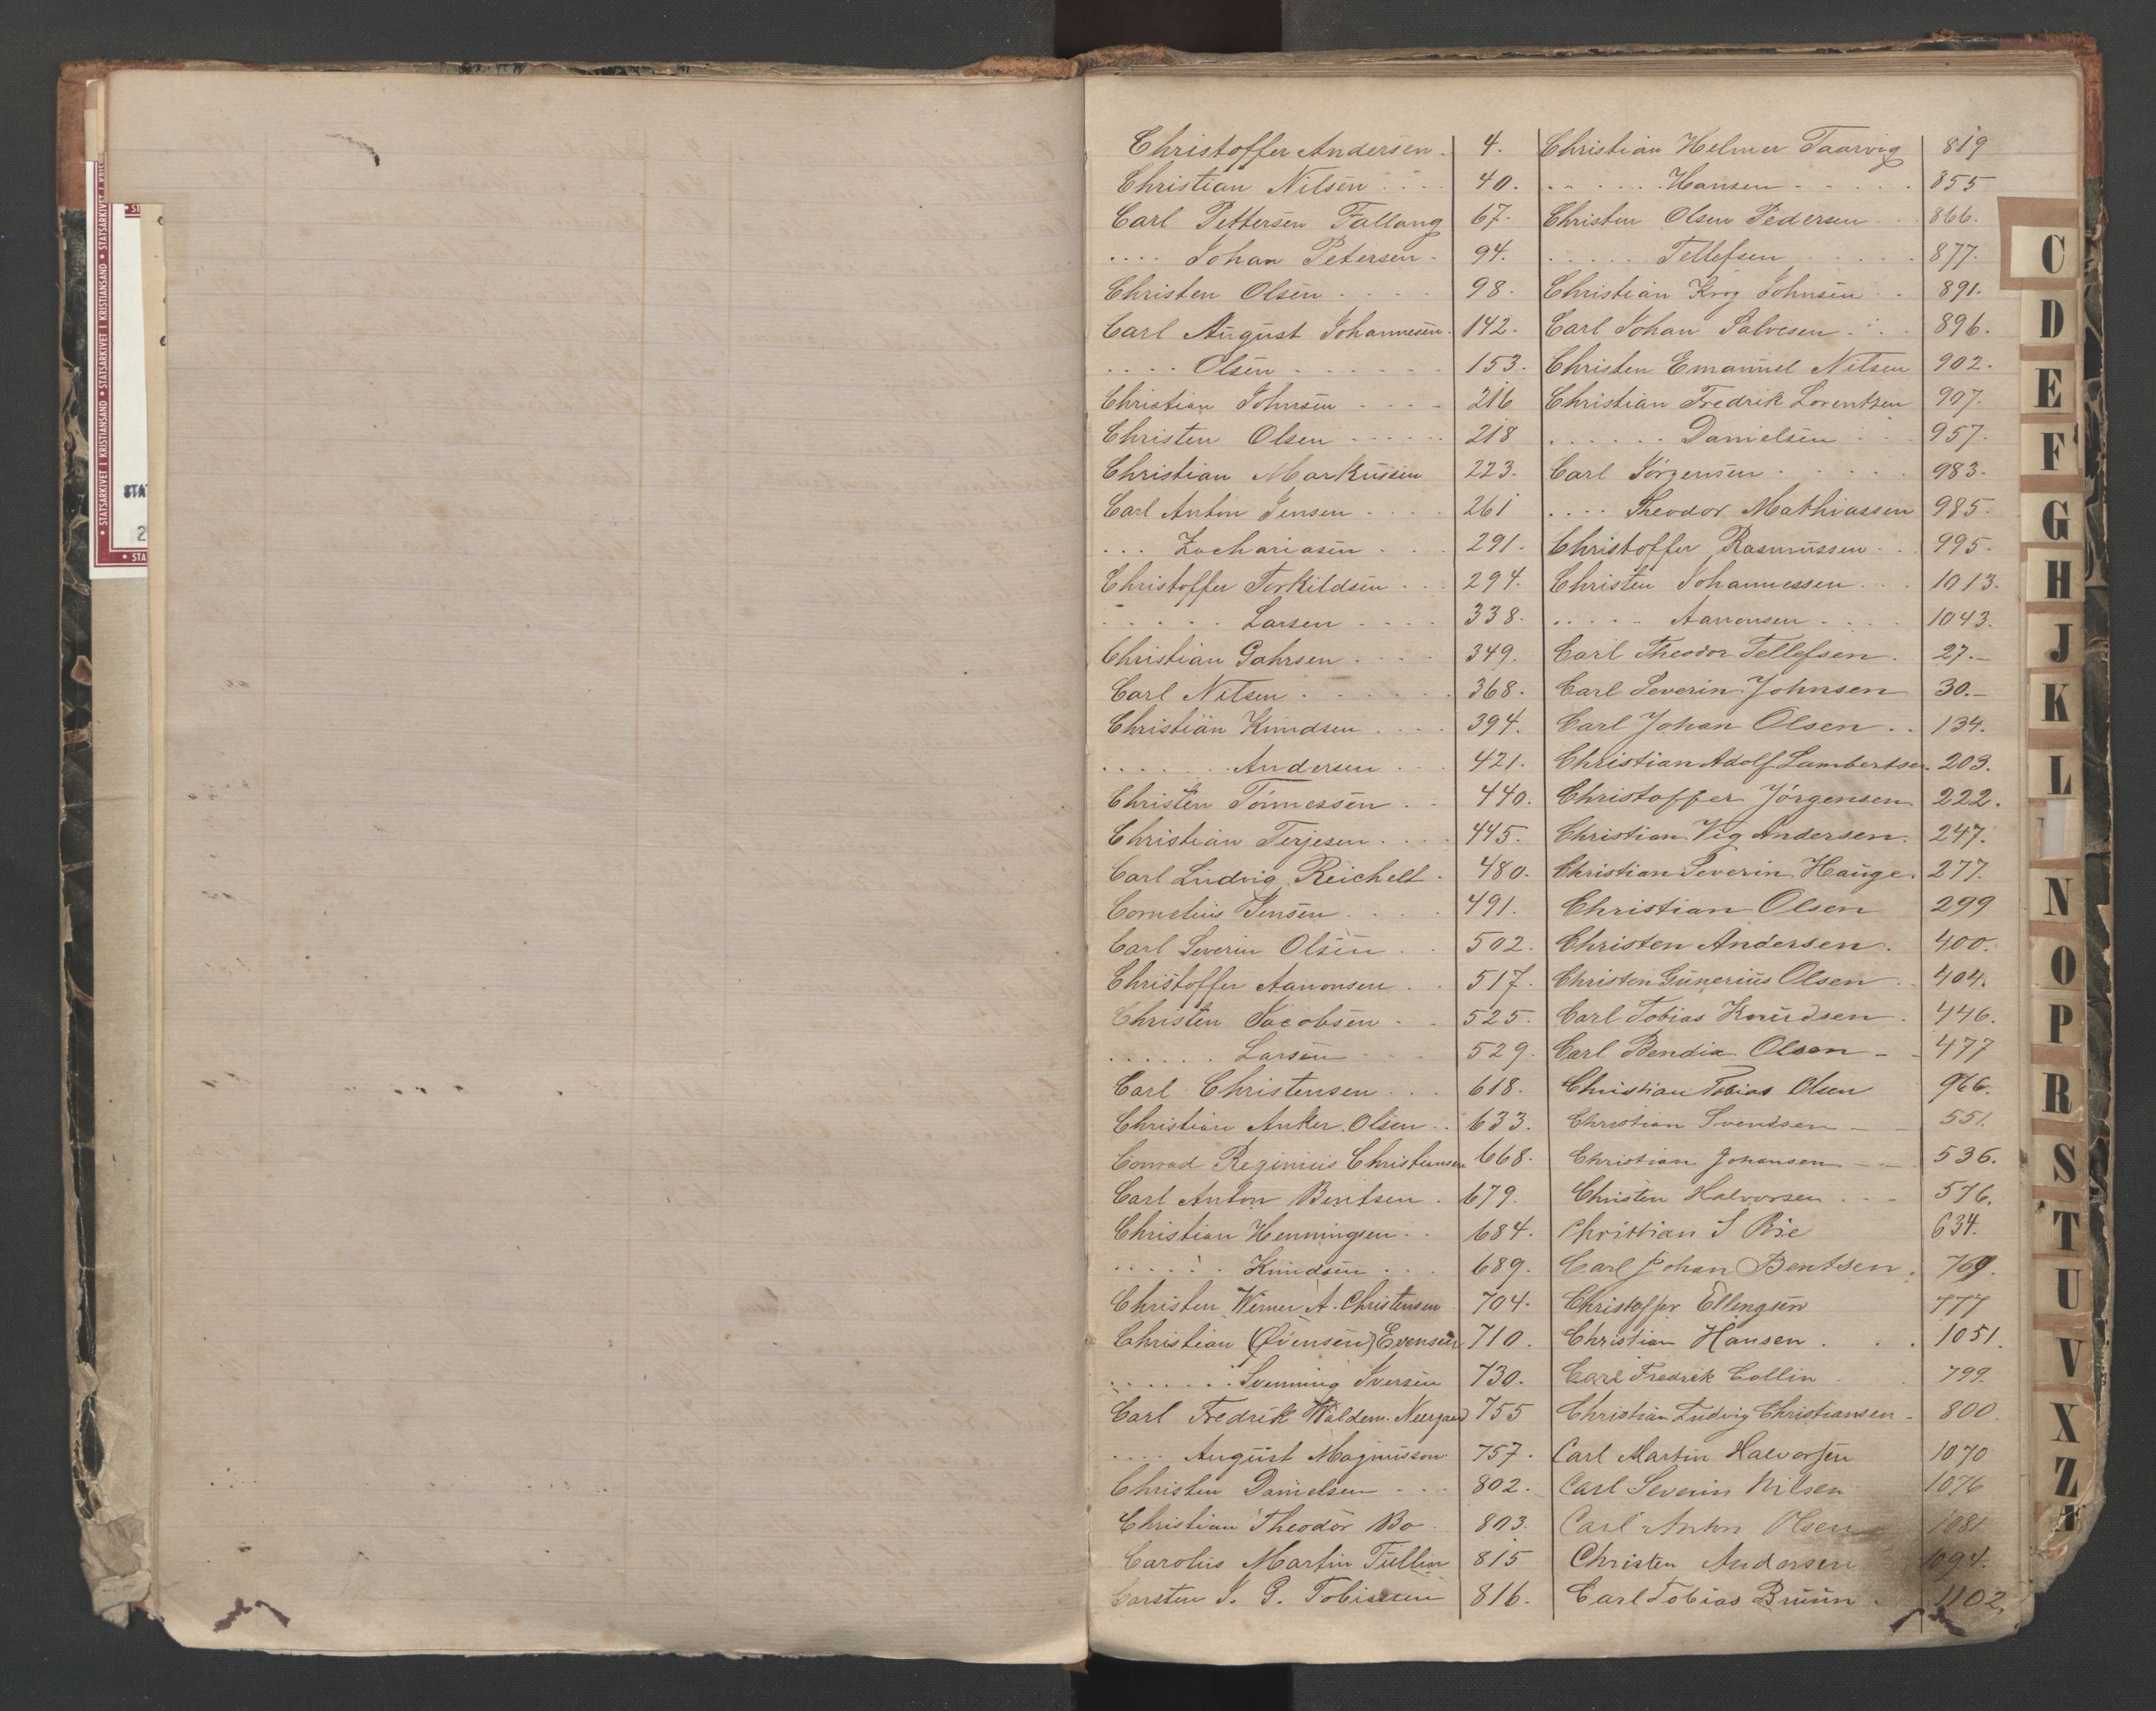 Christoffer Andersen. 4.
Christian Nilsen .... 40.
Carl Pettersen Fallang 67.
.... Johan Petersen. 94.
Christen Olsen .... 98.
Carl August Johannesen. 142.
.... Olsen ...... 153.
Christian Johnsen .... 216
Christen Olsen ..... 218
Christian Markussen 223.
Carl Anton Jensen .... 261
... Zachariasen ... 291.
Christoffer Torkildsen ... 294.
..... Larsen .... 338.
Christian Gahrsen .... 349.
Carl Nilsen ...... 368.
Christian Knudsen .... 394.
....... Andersen ... 421.
Christen Tönnessen .. 440.
Christian Terjesen .... 445.
Carl Ludvig Reichelt. 480.
Cornelius Jensen .... 491.
Carl Severin Olsen .. 502.
Christoffer Aanonsen .. 517.
Christen Jacobsen .. 525.
...... Larsen ... 529.
Carl Christensen ... 618.
Christian Anker Olsen .. 633.
Conrad Reginius Christiansen 668.
Carl Anton Bentsen. 679.
Christian Henningsen .. 684.
...... Knudsen ... 689.
Christen Werner A. Christensen 704.
Christian (Övensen) Evensen 710.
....... Svenning Iversen 730.
Carl Fredrik Waldem. Neergaard 755
.... August Magnusson 757.
Christen Danielsen ... 802.
Christian Theodor Bo. 803.
Carolus Martin Tullin 815
Carsten J. G. Tobiesen 816.
Christian Helmer Taarvig 819
...... Hansen ..... 855
Christen Olsen Pedersen .. 866.
..... Tellefsen ..... 877.
Christian Krog Johnsen .. 891.
Carl Johan Salvesen ... 896.
Christen Emanuel Nilsen 902.
Christian Fredrik Lorentzen 907.
...... Danielsen ... 957.
Carl Jörgensen ..... 983.
.... Theodor Mathiassen 985.
Christoffer Rasmussen ... 995.
Christen Johannessen ... 1013.
..... Aanonsen .... 1043.
Carl Theodor Tellefsen. 27.-
Carl Severin Johnsen 30.-
Carl Johan Olsen .. 134.
Christian Adolf Lambertsen. 203.
Christoffer Jörgensen. 222.
Christian Vig Andersen. 247.
Christian Severin Hauge. 277.
Christian Olsen 299
Christen Andersen. 400.
Christen Gunerius Olsen .. 404.
Carl Tobias Knudsen. 446.
Carl Bendix Olsen - - 477
Christian Tobias Olsen 966.
Christian Svendsen - - 551.
Christian Johansen - - 536.
Christen Halvorsen - - - 576.
Christian S Bie 634.
Carl Johan Bentsen. 769.
Christoffer Ellengsen 777
Christian Hansen ... 1051.
Carl Fredrik Collin .. 799.
Christian Ludvig Christiansen - 800.
Carl Martin Halvorsen 1070
Carl Severin Nilsen 1076
Carl Anton Olsen 1081
Christen Andersen 1094.
Carl Tobias Bruun. 1102.
C
D
E
F
G
H
J
K
L
N
O
P
R
S
T
U
V
X
Z
STATSARKIVET I KRISTIANSAND • STATSARKIVET I KRISTIANSAND • STATSARKIVET I